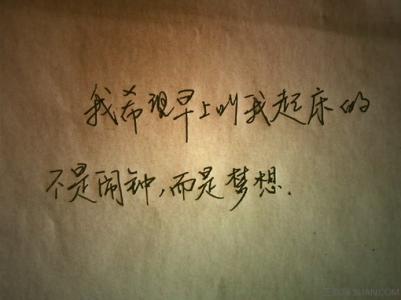 我希望早上叫我起床的
不是闹钟,而是梦想.
3LIAN.COM